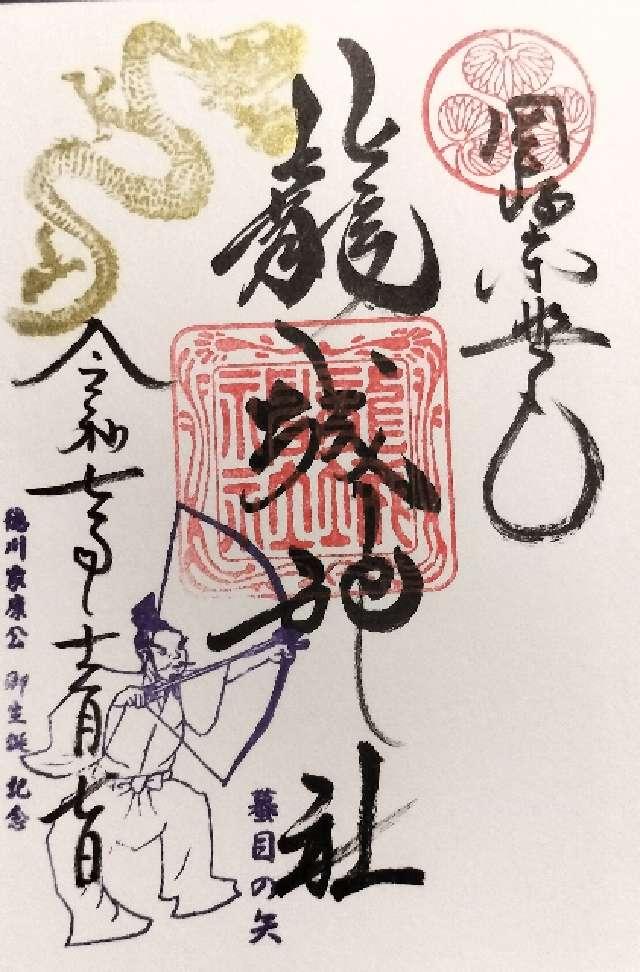 岡崎東照宮
龍城神社
龍城神社
令和七年十二月七日
徳川家康公 御生誕 記念
蟇目の矢